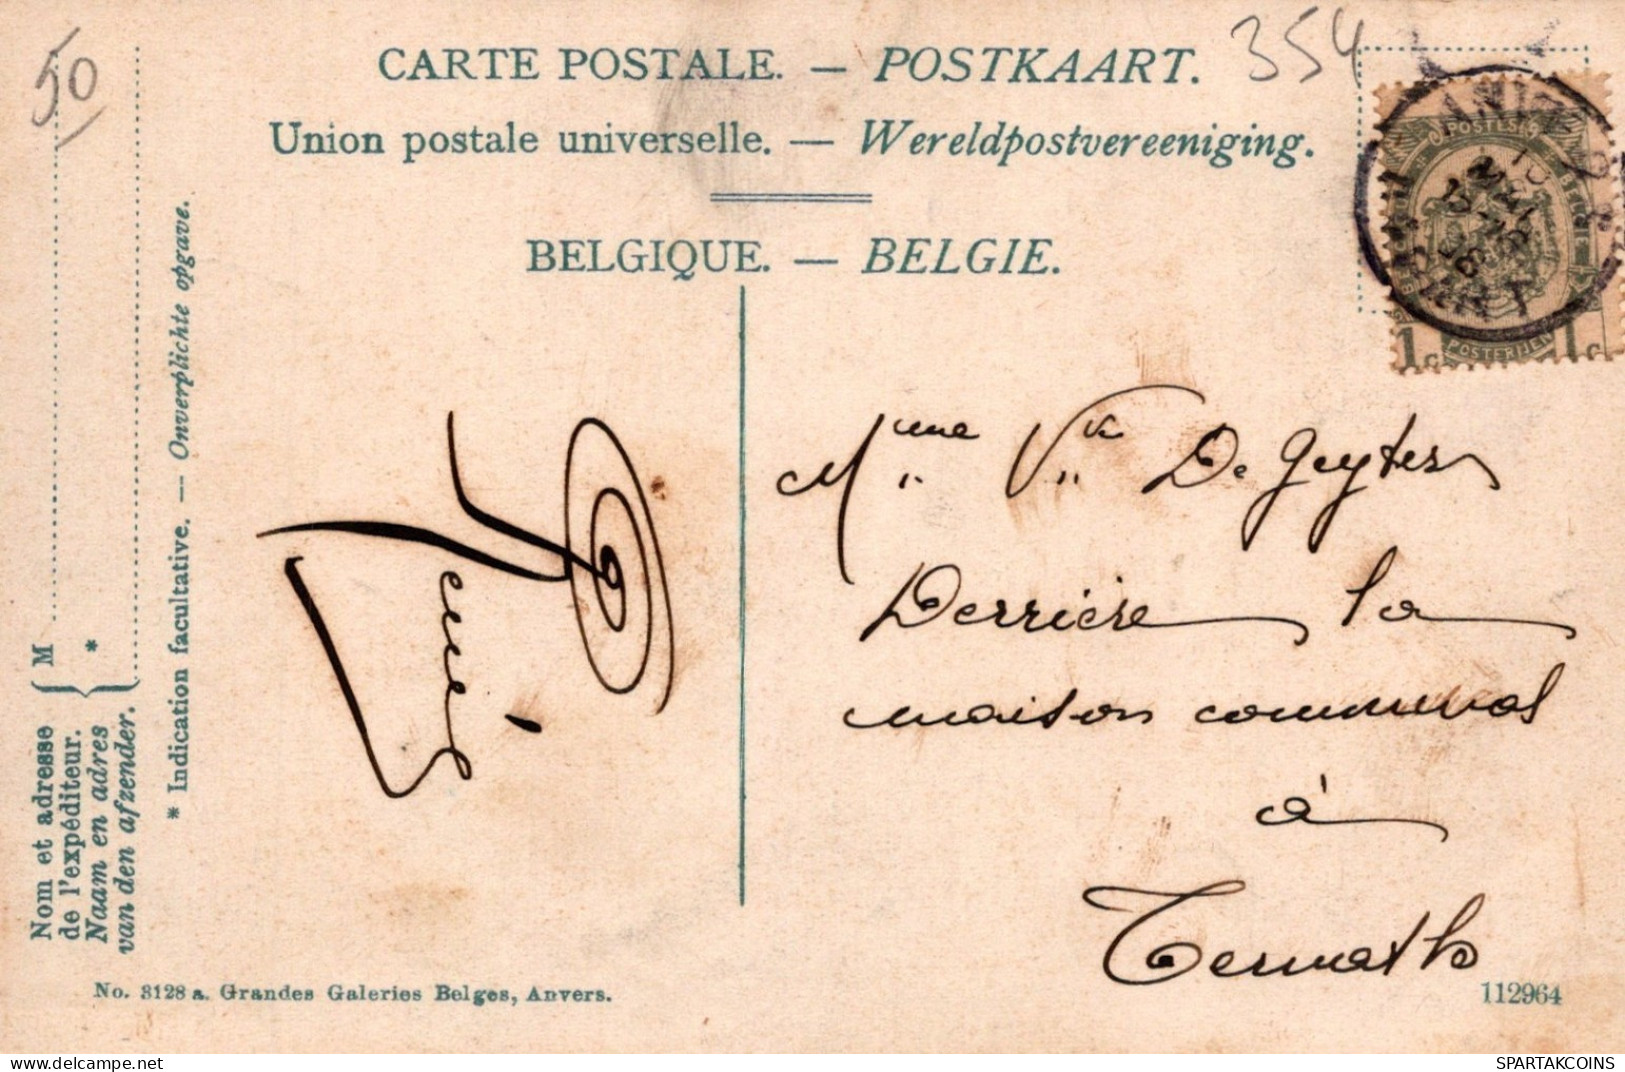 50
354
CARTE POSTALE. — POSTKAART.
Union postale universelle. — Wereldpostvereeniging.
BELGIQUE. — BELGIE.
POSTES
BELGIE
POSTERIJEN
1c 1c
Nom et adresse
de l'expéditeur.
Naam en adres
van den afzender.
M
*
* Indication facultative. — Onverplichte opgave.
Mme Vve De Geyter
Derrière la
maison communal
à
Ternath
No. 3128 a. Grandes Galeries Belges, Anvers.
112964
SPARTAKCOINS